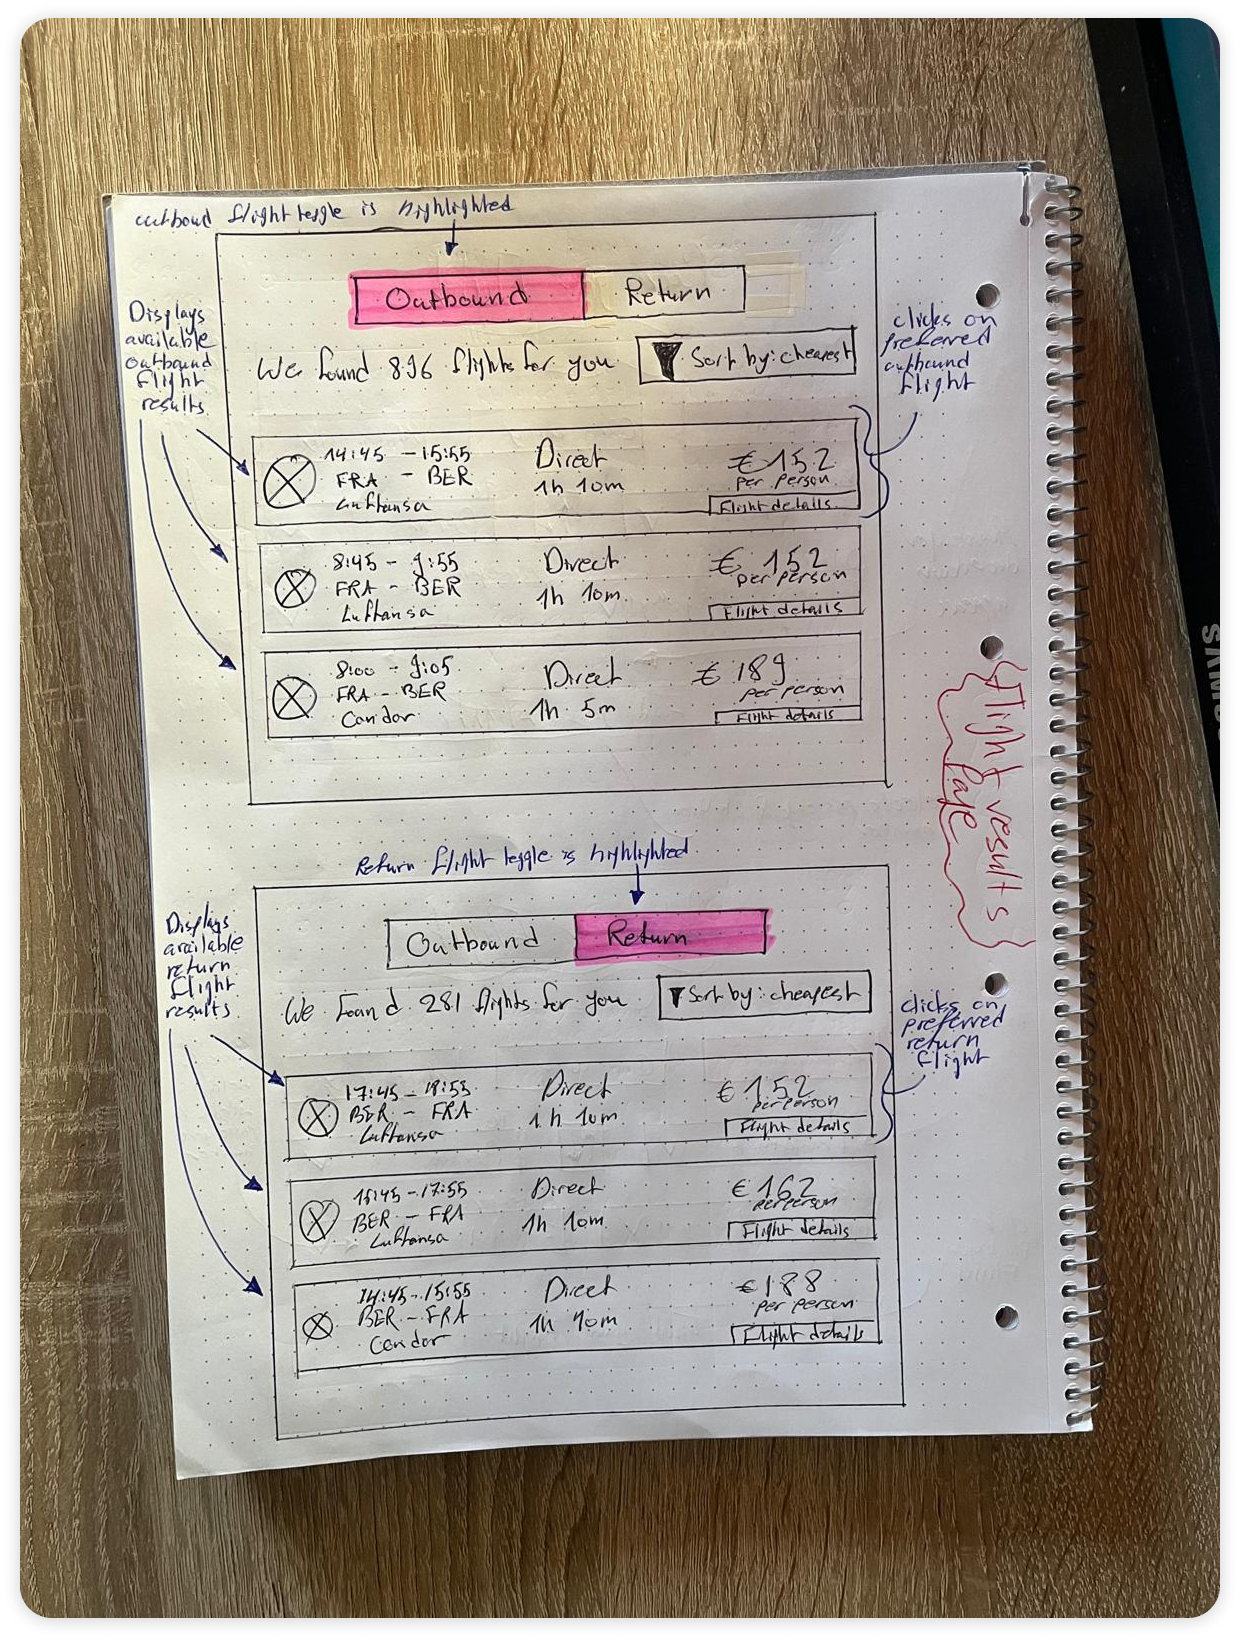 outbound flight toggle is highlighted
Outbound
Return
Displays
available
outbound
flight
results
We found 896 flights for you
Sort by: cheapest
clicks on
preferred
outbound
flight
14:45 - 15:55
FRA - BER
Lufthansa
Direct
1h 10m
€ 152
per person
Flight details
8:45 - 9:55
FRA - BER
Lufthansa
Direct
1h 10m
€ 152
per person
Flight details
8:00 - 9:05
FRA - BER
Condor
Direct
1h 5m
€ 189
per person
Flight details
Flight results
Page
Return flight toggle is highlighted
Outbound
Return
Displays
available
return
flight
results
We found 281 flights for you
Sort by: cheapest
clicks on
preferred
return
flight
17:45 - 18:55
BER - FRA
Lufthansa
Direct
1h 10m
€ 152
per person
Flight details
16:45 - 17:55
BER - FRA
Lufthansa
Direct
1h 10m
€ 162
per person
Flight details
14:45 - 15:55
BER - FRA
Condor
Direct
1h 10m
€ 188
per person
Flight details